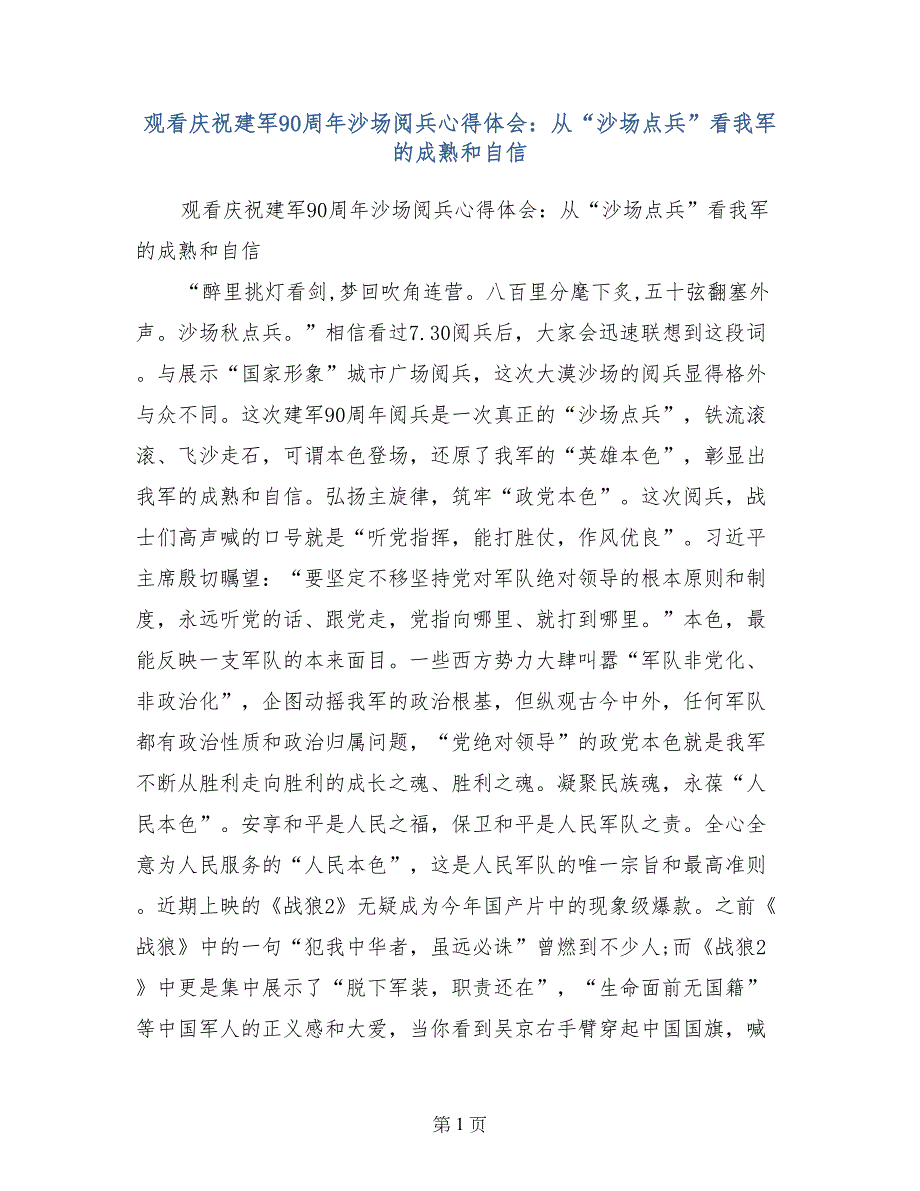 观看庆祝建军90周年沙场阅兵心得体会：从“沙场点兵”看我军
的成熟和自信
观看庆祝建军90周年沙场阅兵心得体会：从“沙场点兵”看我军
的成熟和自信
“醉里挑灯看剑,梦回吹角连营。八百里分麾下炙,五十弦翻塞外
声。沙场秋点兵。”相信看过7.30阅兵后，大家会迅速联想到这段词
。与展示“国家形象”城市广场阅兵，这次大漠沙场的阅兵显得格外
与众不同。这次建军90周年阅兵是一次真正的“沙场点兵”，铁流滚
滚、飞沙走石，可谓本色登场，还原了我军的“英雄本色”，彰显出
我军的成熟和自信。弘扬主旋律，筑牢“政党本色”。这次阅兵，战
士们高声喊的口号就是“听党指挥，能打胜仗，作风优良”。习近平
主席殷切瞩望：“要坚定不移坚持党对军队绝对领导的根本原则和制
度，永远听党的话、跟党走，党指向哪里、就打到哪里。”本色，最
能反映一支军队的本来面目。一些西方势力大肆叫嚣“军队非党化、
非政治化”，企图动摇我军的政治根基，但纵观古今中外，任何军队
都有政治性质和政治归属问题，“党绝对领导”的政党本色就是我军
不断从胜利走向胜利的成长之魂、胜利之魂。凝聚民族魂，永葆“人
民本色”。安享和平是人民之福，保卫和平是人民军队之责。全心全
意为人民服务的“人民本色”，这是人民军队的唯一宗旨和最高准则
。近期上映的《战狼2》无疑成为今年国产片中的现象级爆款。之前《
战狼》中的一句“犯我中华者，虽远必诛”曾燃到不少人;而《战狼2
》中更是集中展示了“脱下军装，职责还在”，“生命面前无国籍”
等中国军人的正义感和大爱，当你看到吴京右手臂穿起中国国旗，喊
第 1 页